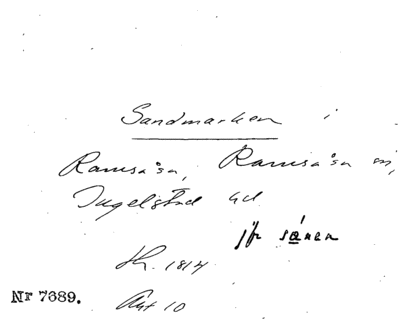 Sandmarken i
Ramsåsa, Ramsåsa sn,
Ingelstad hd
jfr sanen
Sk. 1814
Nr 7689.
Akt 10